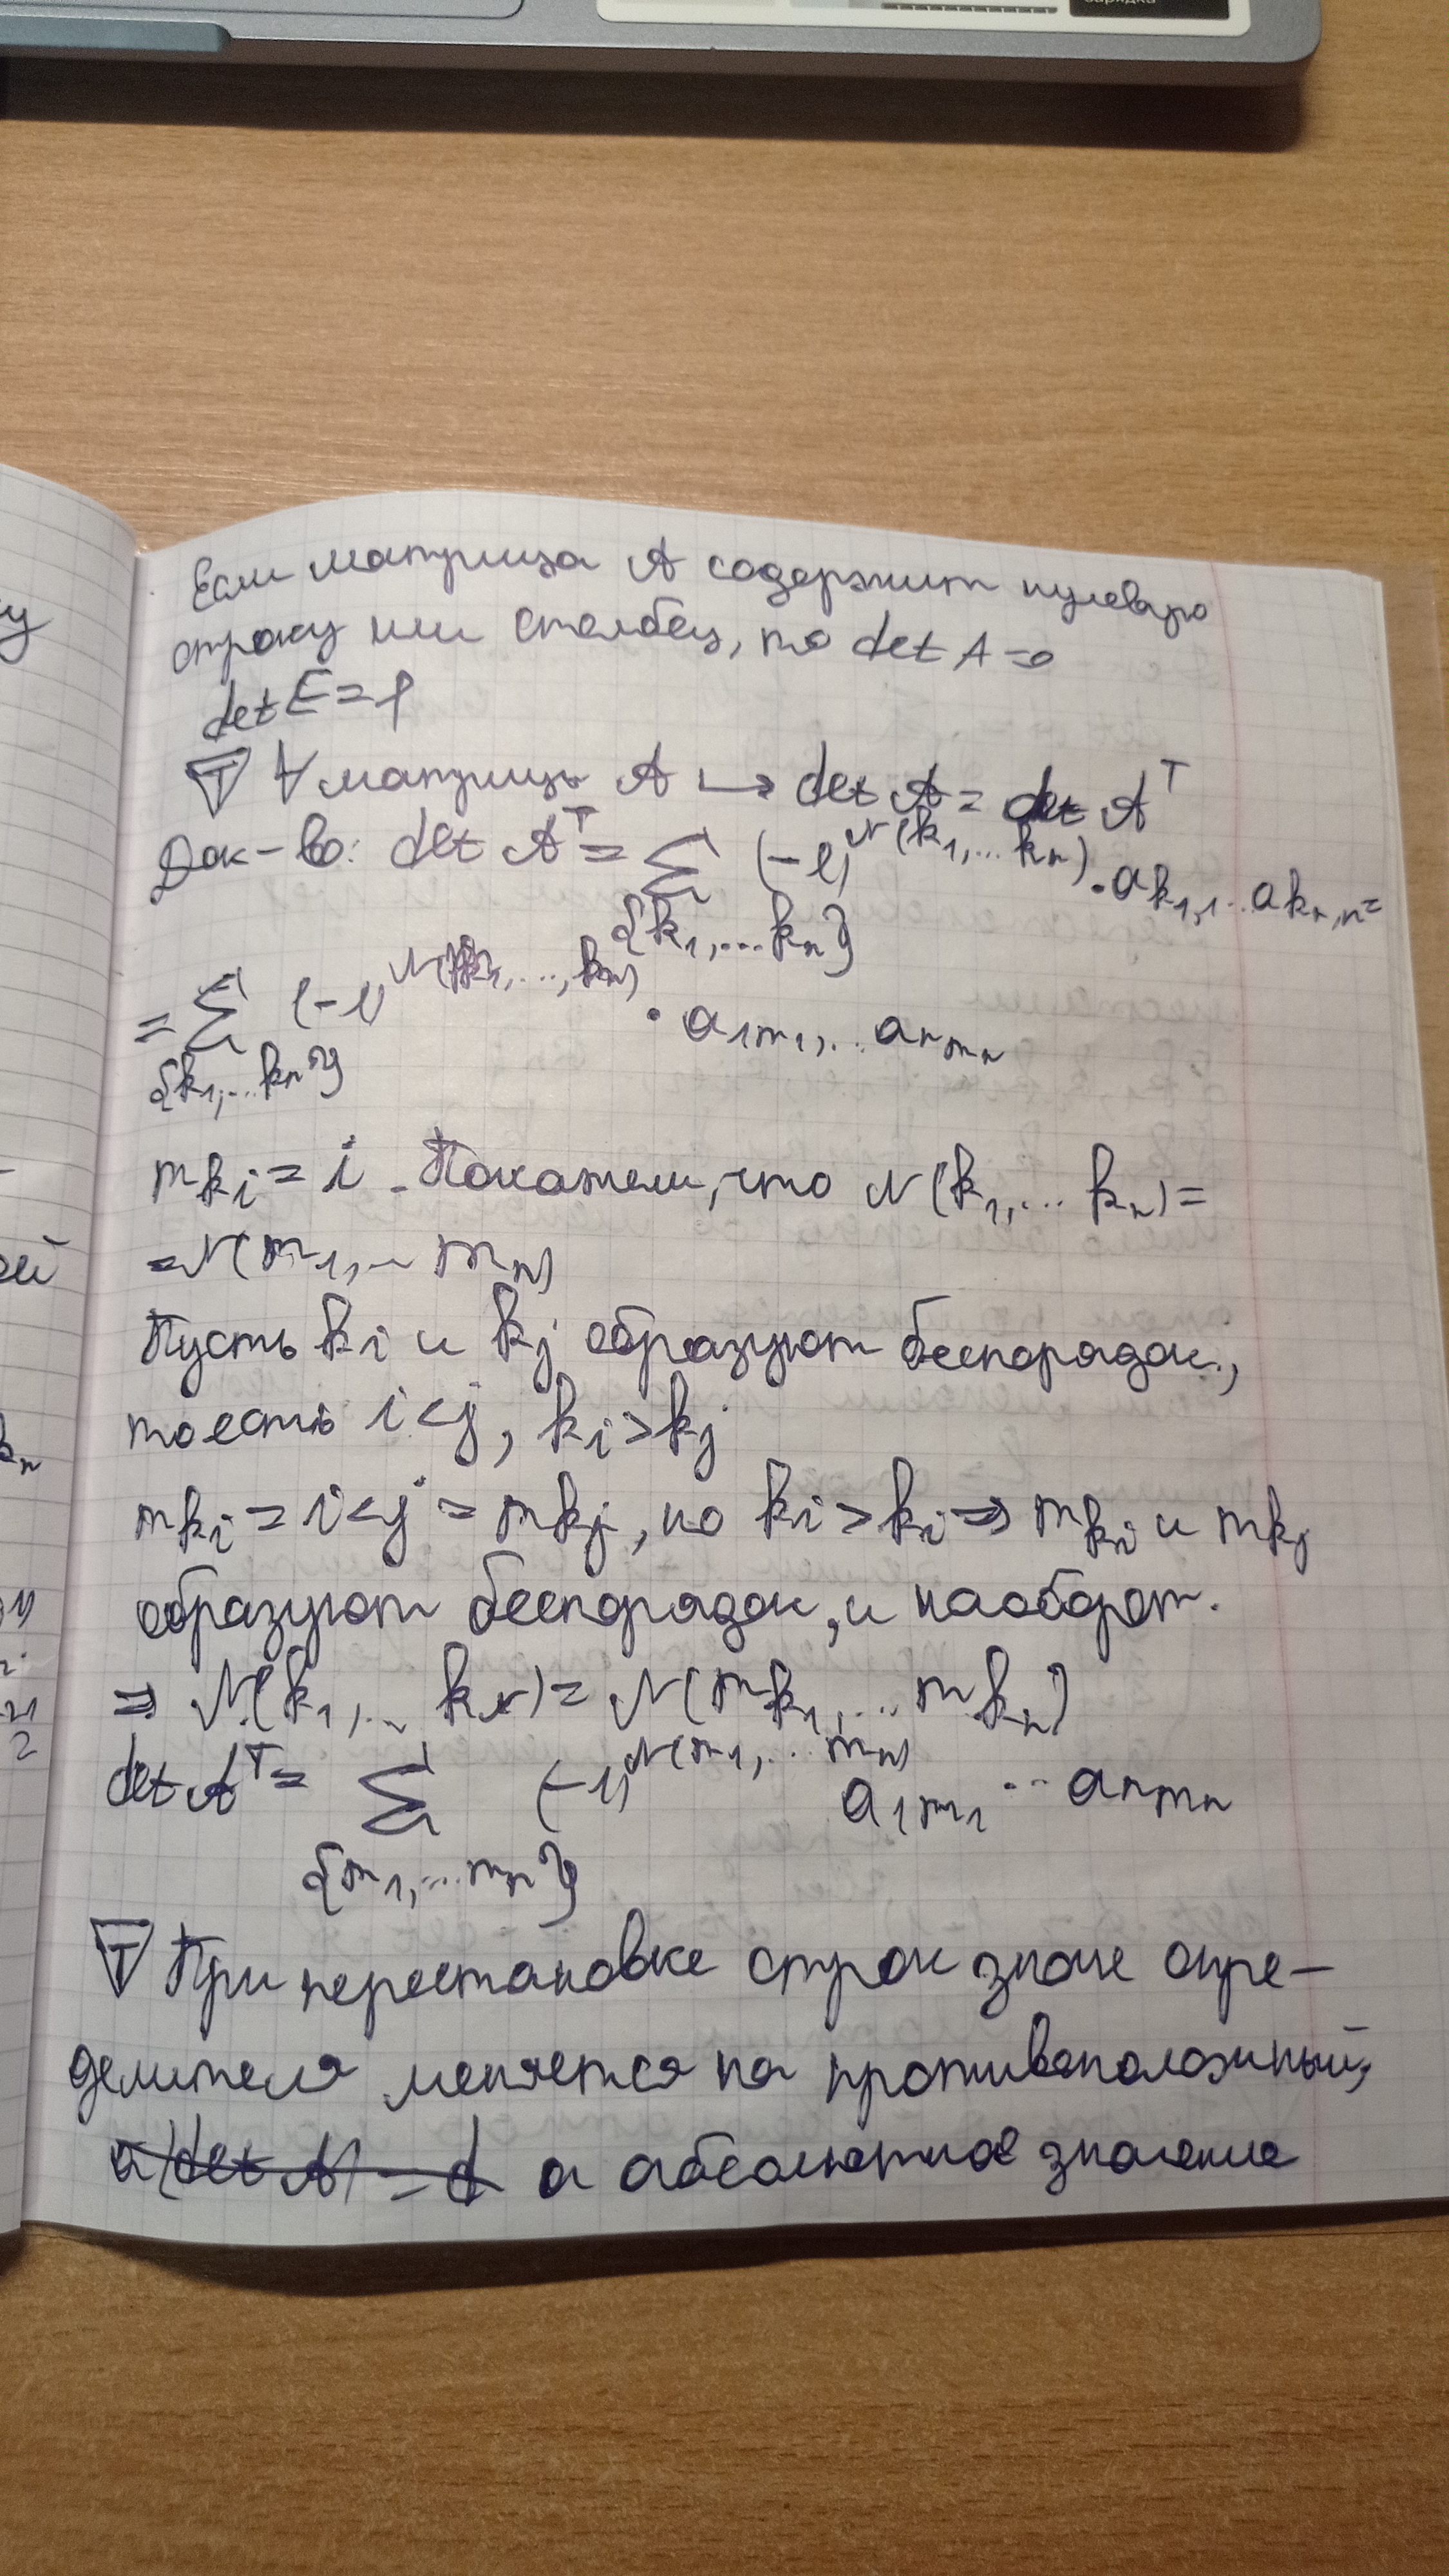 зарядка
Если матрица A содержит нулевую
строку или столбец, то det A = 0
det E = 1
T ∀ матрицы A ↦ det A = det Aᵀ
Док-во: det Aᵀ = ∑ (-1)^N(k₁,...kₙ) · a_k₁,₁...a_kₙ,ₙ =
{k₁,...kₙ}
= ∑ (-1)^N(k₁,...,kₙ) · a₁m₁,...aₙmₙ
{k₁,...kₙ}
m_kᵢ = i. Покажем, что N(k₁,...kₙ) =
= N(m₁,...mₙ)
Пусть kᵢ и kⱼ образуют беспорядок,
то есть i<j, kᵢ>kⱼ
m_kᵢ = i<j = m_kⱼ, но kᵢ>kᵢ ⇒ m_kᵢ и m_kⱼ
образуют беспорядок, и наоборот.
⇒ N(k₁,...kₙ) = N(m_k₁,...m_kₙ)
det Aᵀ = ∑ (-1)^N(m₁,...mₙ) a₁m₁...aₙmₙ
{m₁,...mₙ}
T При перестановке строк знак опре-
делителя меняется на противоположный,
а абсолютное значение